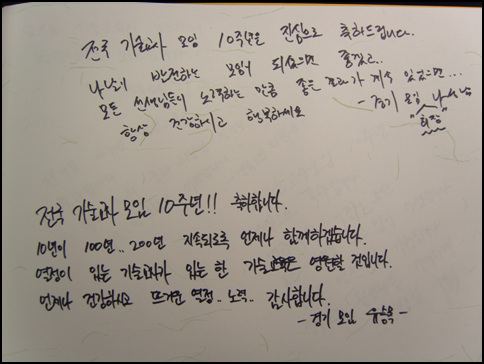 전국 기술교과 모임 10주년을 진심으로 축하드립니다.
나날이 발전하는 모임이 되었으면 좋겠고..
모든 선생님들이 노력하는 만큼 좋은 결과가 계속 있었으면...
항상 건강하시고 행복하세요 - 경기 모임
회장
전국 기술교과 모임 10주년!! 축하합니다.
10년이 100년.. 200년 지속되도록 언제나 함께하겠습니다.
열정이 있는 기술교과가 있는 한 기술교과는 영원할 것입니다.
언제나 건강하시고 뜨거운 열정.. 노력.. 감사합니다.
- 경기 모임 유승욱 -